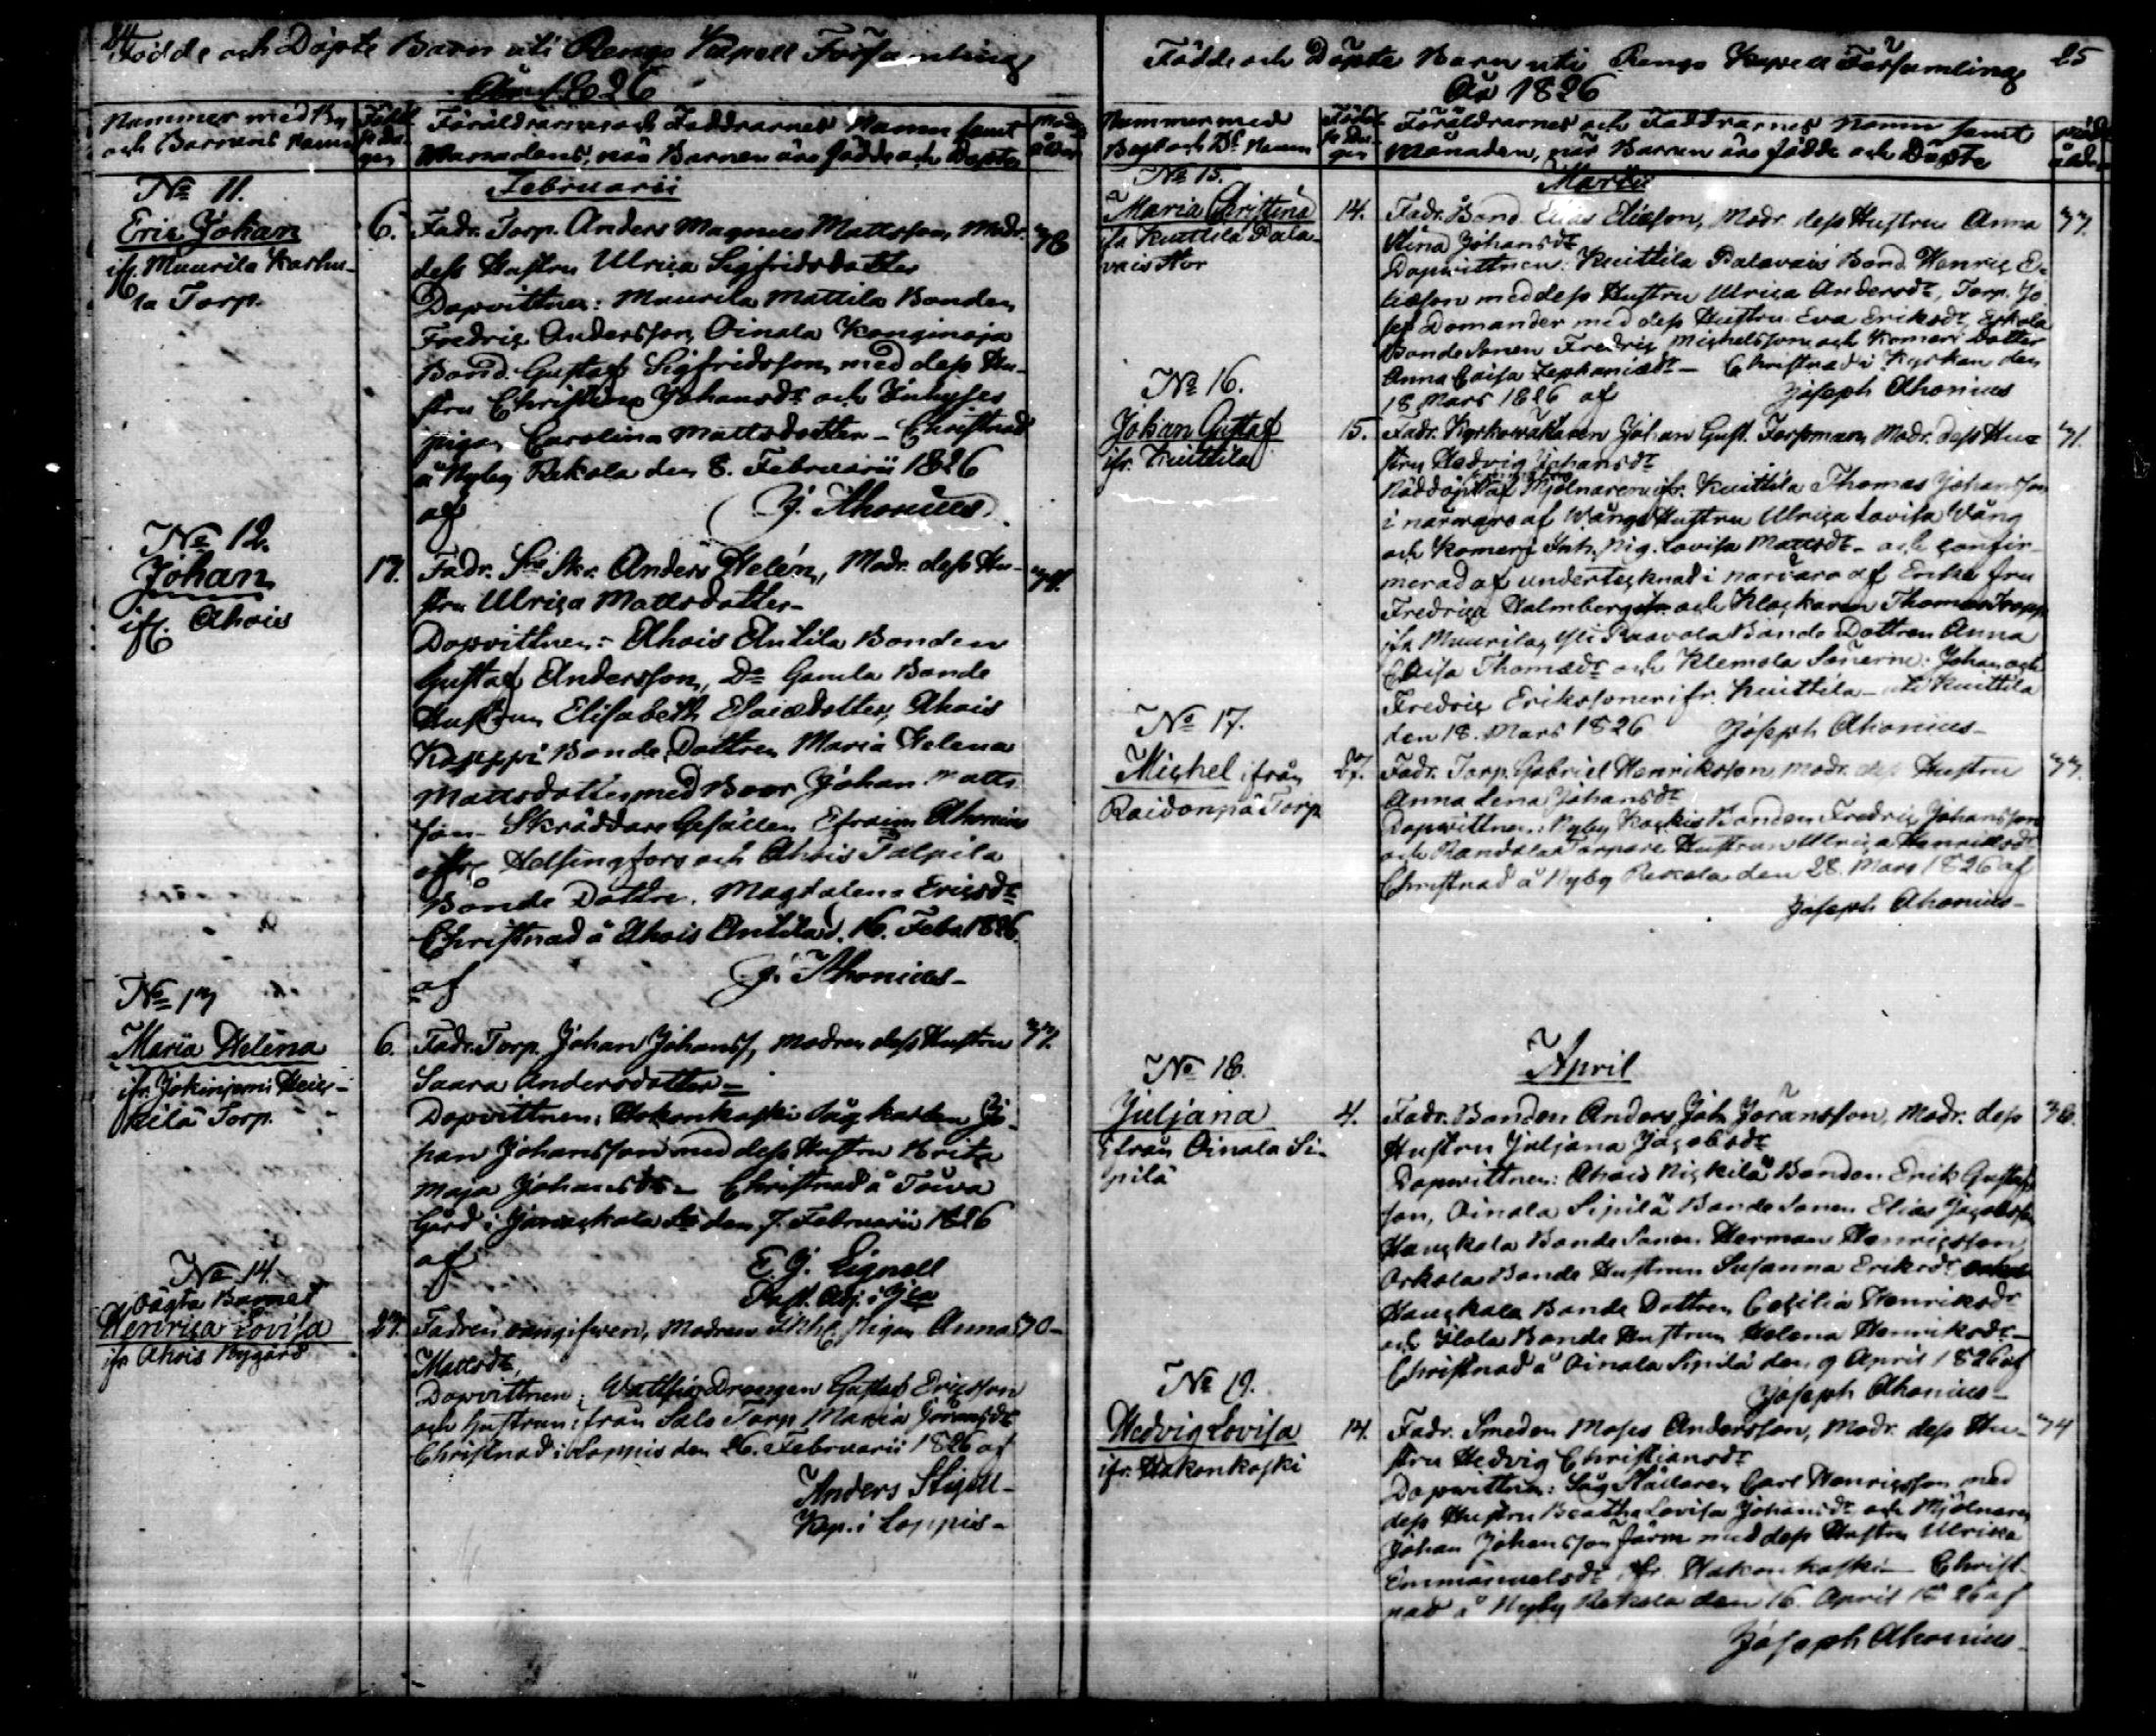 24
Födde och Döpte Barn uti Rengo Kapell Församling
År 1826
Nummer med By och Barnens Namn
Född se da-gen
Föräldrarnes och Faddrarnes Namn samt
Månadens, när Barnen äro födde och Döpte
Februarii
No 11.
Eric Johan
ifr. Muurila Karhu-
la Torp.
6. Fadr. Torp. Anders Magnus Mattsson, Modr.
dess Hustru Ulrica Sigfridsdotter
Dopvittnen: Muurila Mattila Bonden
Fredric Andersson, Oinala Konginoja
Bond. Gustaf Sigfridsson, med dess Hu-
stru Christina Johansdr och Inhyses
pigan Carolina Mattsdotter - Christnad
å Nyby Rekola den 8. Februarii 1826
af J. Ahonius
No 12.
Johan
ifr. Ahois
17. Fadr. Anders Helén, Modr. dess Hu-
stru Ulrica Mattsdotter-
Dopvittnen: Ahois Antila Bonden
Gustaf Andersson, Do Gamla Bonde
Hustrun Elisabeth Esaiædotter, Ahois
Kaseppi Bonde Dottren Maria Helena
Mattsdotter, med Bror Johan Matts
son - Skräddare Gesällen Efraim Ahonius
Helsingfors och Ahois Talpila
Bonde Dottre. Magdalena Ericsdr
Christnad å Ahois Antila d. 16. Febr. 1826.
af J. Ahonius-
No 13
Maria Helena
ifr. Jokiniemi Heic-
kilä Torp.
6. Fadr. Torp. Johan Johanss, Modren dess Hustru 37.
Saara Andersdotter-
Dopvittnen: Hokonkoski Sågkarlen Jo-
han Johansson med dess Hustru Brita
Maja Johansdr - Christnad å Towa
Gård i Janackala den 7. Februarii 1826
af E. J. Lignell
Past. Adj. i
No 14.
Oägta Barnet
Henrica Lovisa
ifr Ahois Nygård
27. Fadren oangifven, Modren Pigan Anna 30-
Mattsdr
Dopvittnen: Drengen Gustaf Ericsson
och Hustrun från Salo Torp Maria Göransdr
Christnad i Loppis den 26. Februarii 1826 af
Anders Stigell-
Kap. i Loppis-
25
Födde och Döpte Barn uti Rengo Kapell Församling
År 1826
Nummer med Byst och Ds Namn
Född se da-gen
Föräldrarnes och Faddrarnes Namn samt
Månaden, när Barnen äro födde och Döpte
Martii
No 15.
Maria Christina
ifr Kuittila Pala-
vais Nor
14. Fadr. Bond. Elias Eliæson, Modr. dess Hustru Anna 37.
Stina Johansdr
Dopvittnen: Kuittila Palavais Bond Henric E-
liæson med dess Hustru Ulrica Andersdr, Torp. Jo-
sef Domander med dess Hustru Eva Eriksdr, Eskola
Bonde Sonen Fredric Michelsson och Komeri Dotter
Anna Caisa Zephaniædr - Christnad i Kyrkan den
18 Mars 1826 af Joseph Ahonius
No 16.
Johan Gustaf
ifr. Kuittila
15. Fadr. Kyrkowaktaren Johan Gust. Forsman, Modr. dess Hu- 31.
stru Hedvig Johansdr
Nöddöpt af Mjölnaren ifr. Kuittila Thomas Johansson
i närvaro af Wångs Hustru Ulrica Lovisa Wång
och Komeri Inh. Pig. Lovisa Mattsdr - och confir-
merad af undertecknad i narvaro af Enke fru
Fredrica Halmberg och Klockaren Thomas
ifr Muurila, Yli Paavola Bonde Dottren Anna
Caisa Thomædr och Klemola Sönerne: Johan och
Fredric Eriksoner ifr. Kuittila - uti Kuittila
den 18. Mars 1826 Joseph Ahonius-
No 17.
Michel ifrån
Raidonpä Torp
27. Fadr. Torp. Gabriel Henriksson, Modr. dess Hustru 37.
Anna Lena Johansdr
Dopvittnen: Nyby Kackis Bonden Fredric Johansson
och Randala Torpare Hustrun Ulrica Henriksdr
Christnad å Nyby Rekola den 28. Mars 1826 af
Joseph Ahonius-
April
No 18.
Juljana
ifrån Oinala Si-
pilä
4. Fadr. Bonden Anders Joh. Göransson, Modr. dess 36.
Hustru Juljana Jacobsdr
Dopvittnen: Ahois Nickilä Bonden Erik Gustafs
son, Oinala Sipilä Bonde Sonen Elias Jacobsson
Hauckala Bonde Sonen Herman Henricsson
Orkola Bonde Hustrun Susanna Eriksdr
Hauckala Bonde Dottren Cecilia Henriksdr
och Ilola Bonde Hustrun Helena Henriksdr-
Christnad å Oinala Sipilä den 9 April 1826 af
Joseph Ahonius-
No 19.
Hedvig Lovisa
ifr. Hakonkoski
14. Fadr. Smeden Moses Andersson, Modr. dess Hu- 34
stru Hedvig Christiansdr
Dopvittnen: Såg Ställaren Carl Henricsson med
dess Hustru Beatha Lovisa Johansdr och Mjölnaren
Johan Johansson Färm med dess Hustru Ulrica
Emmanuelsdr ifr. Hakonkoski - Christ-
nad å Nyby Rekola den 16. April 1826 af
Joseph Ahonius-